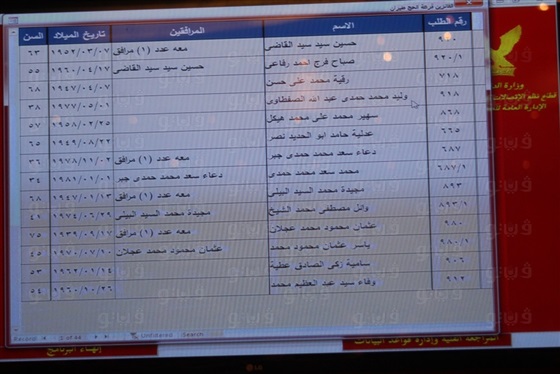 الفائزين قرعة الحج طيران
رقم الطلب الاسم المرافقين تاريخ الميلاد السن
حسين سيد سيد القاضى معه عدد (١) مرافق ١٩٥٢/٠٣/٠٧ ٦٣
٩٢٠/١ صباح فرج احمد رفاعى حسين سيد سيد القاضى ١٩٦٠/٠٤/١٧ ٥٥
٧١٨ رقية محمد على حسن ١٩٤٧/٠٤/٠٧ ٦٨
٩١٨ وليد محمد حمدى عبد الله الصفطاوى ١٩٧٧/٠٥/٠١ ٣٨
٨٦٨ سهير محمد على محمد هيكل ١٩٥٨/٠٢/٢٥ ٥٧
٦٦٥ عدلية حامد ابو الحديد نصر ١٩٤٩/٠٨/٢٢
٦٨٧ دعاء سعد محمد حمدى جبر معه عدد (١) مرافق ١٩٧٨/١١/٠٢ ٣٦
٦٨٧/١ محمد سعد محمد حمدى دعاء سعد محمد حمدى جبر ١٩٨١/٠١/٠١ ٣٤
٨٩٣ مجيدة محمد السيد البيلى معه عدد (١) مرافق ١٩٤٧/٠١/١٣ ٦٨
٨٩٣/١ وائل مصطفى محمد الشيخ مجيدة محمد السيد البيلى ١٩٧٤/٠٦/٢٩ ٤١
٩٨٠ عثمان محمود محمد عجلان معه عدد (١) مرافق ١٩٣٩/٠٩/١٧ ٧٥
٩٨٠/١ ياسر عثمان محمود محمد عثمان محمود محمد عجلان ١٩٧٠/٠٧/١٠ ٤٥
٩٠٦ سامية زكى الصادق عطية ١٩٦٢/٠١/١٤ ٥٣
٩١٢ وفاء سيد عبد العظيم محمد ١٩٦٠/١٠/٢٦ ٥٤
Record Unfiltered Search
وزارة
الإدارة العامة
المراجعة الفنية وإدارة قواعد البيانات
إنهاء البرنامج
LG